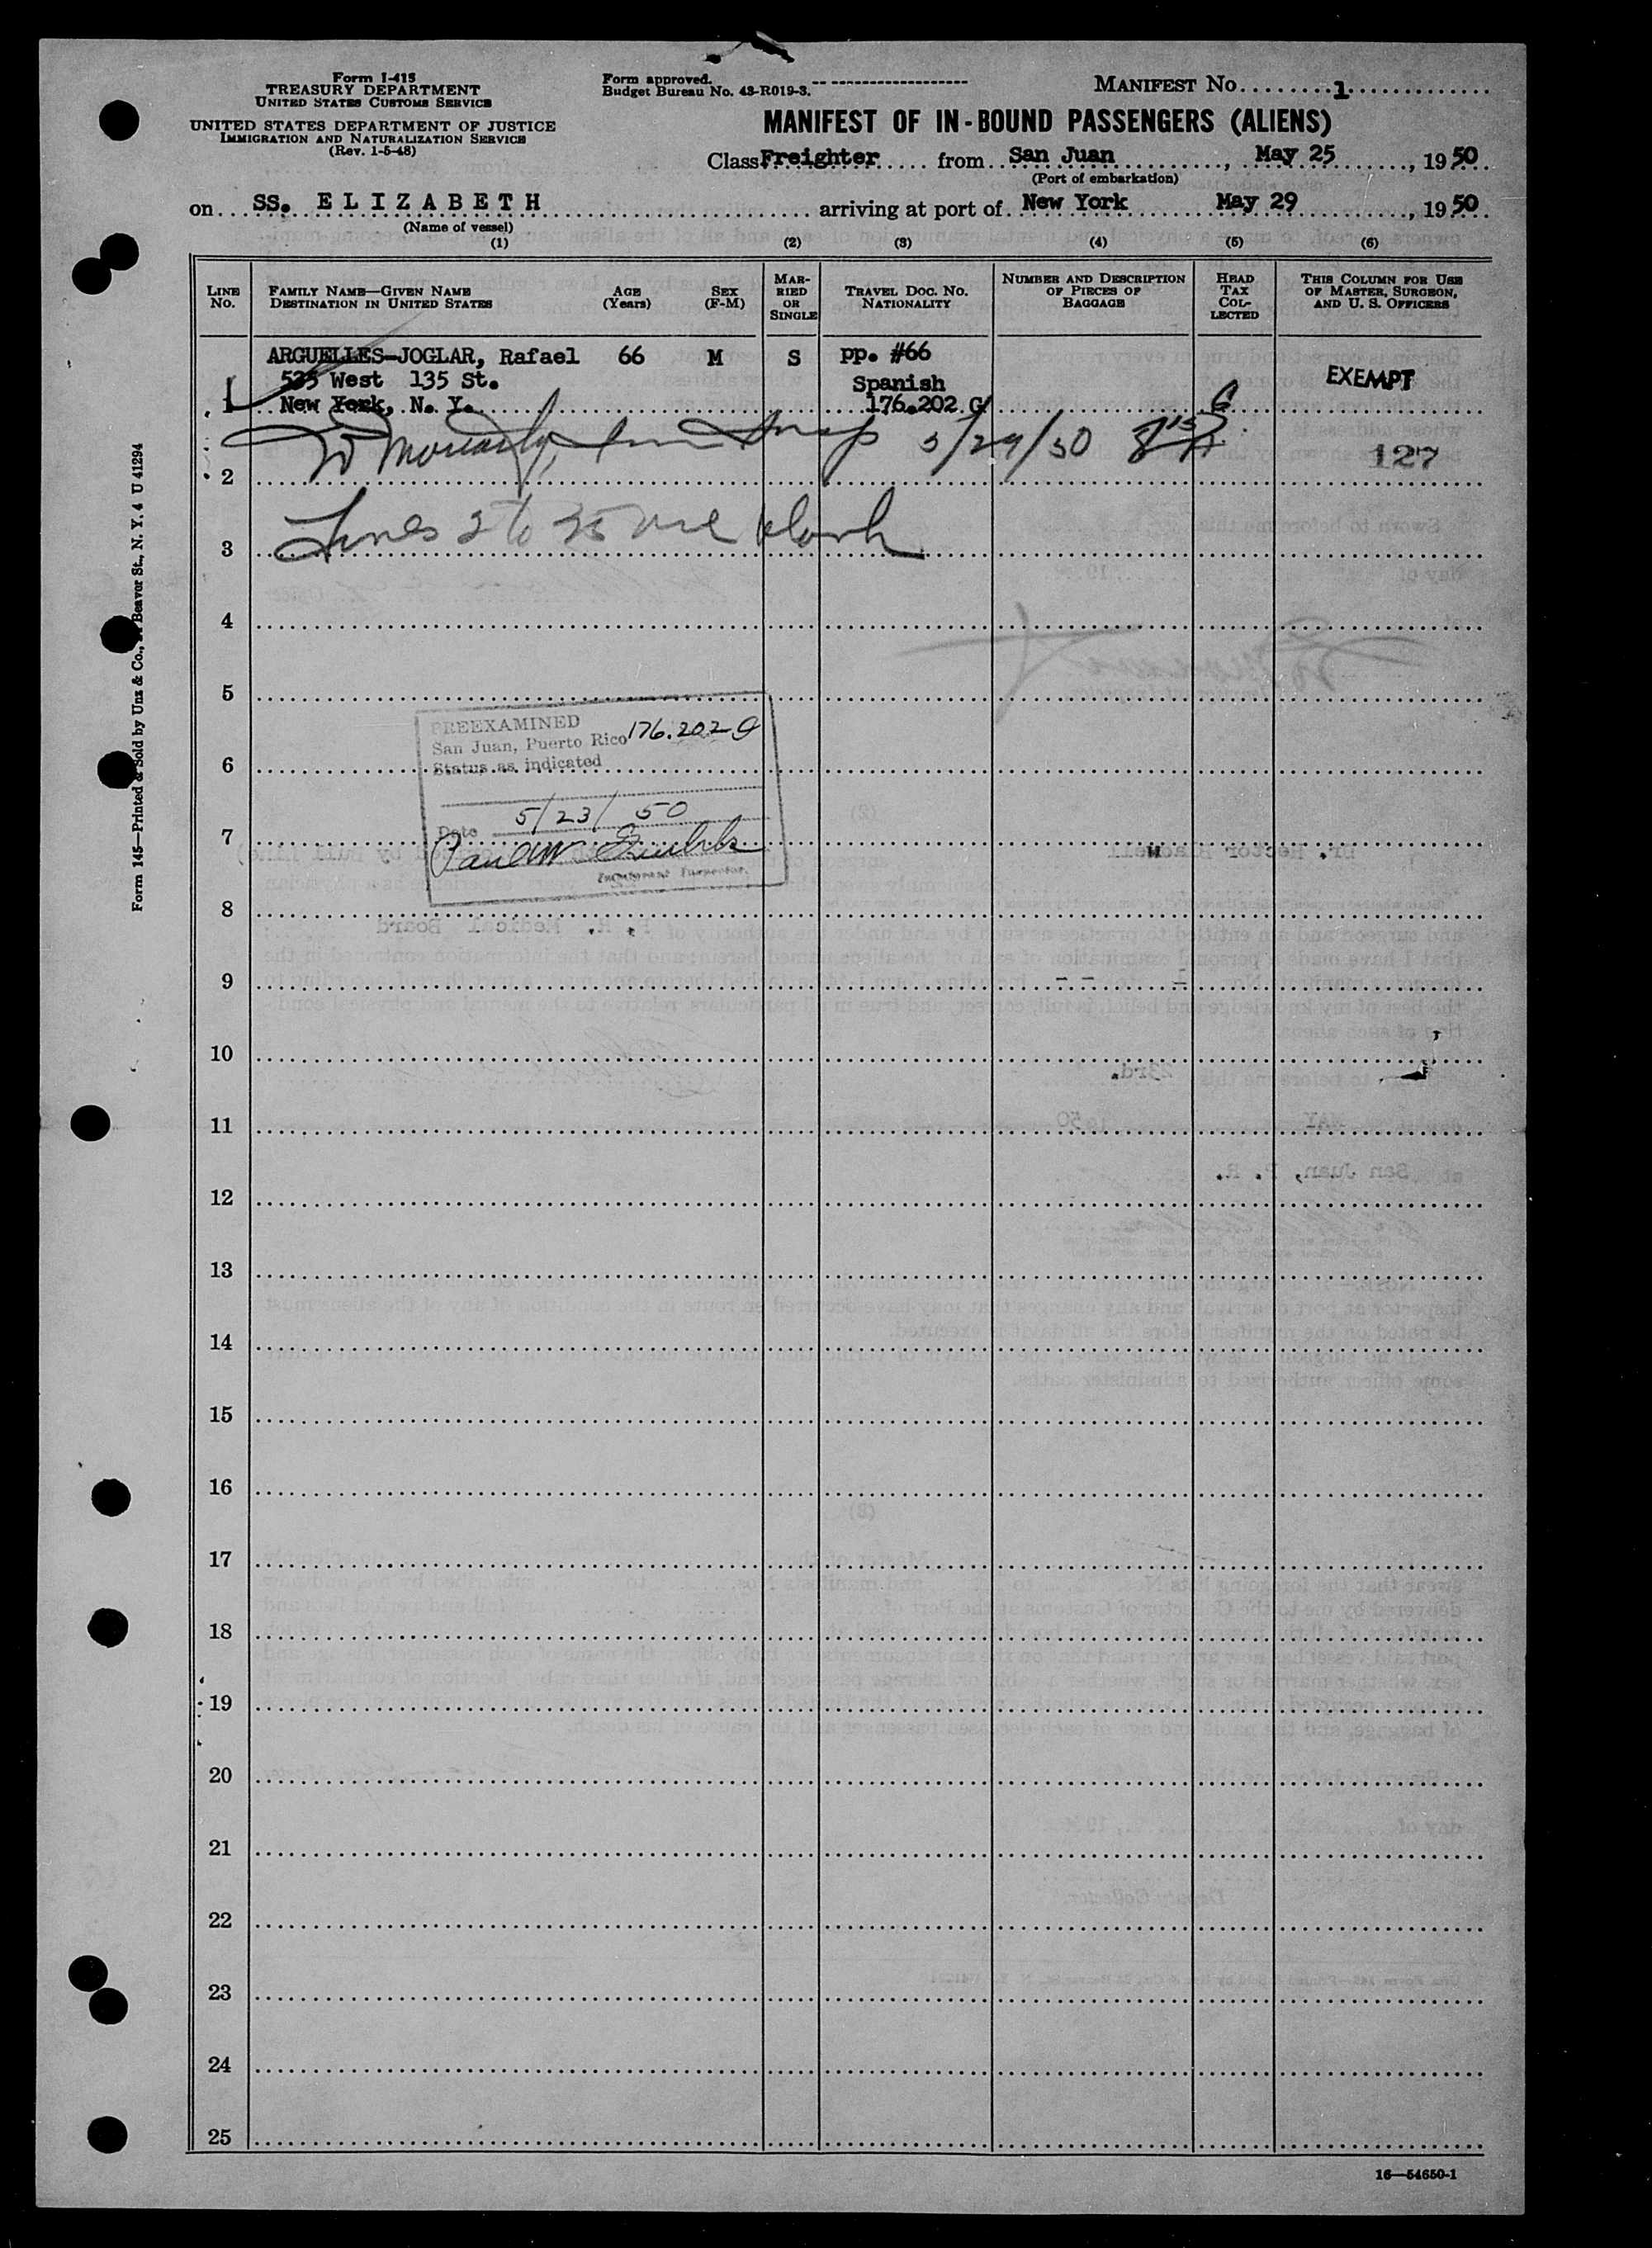 Form I-415
TREASURY DEPARTMENT
UNITED STATES CUSTOMS SERVICE
UNITED STATES DEPARTMENT OF JUSTICE
IMMIGRATION AND NATURALIZATION SERVICE
(Rev. 1-5-48)
Form approved.
Budget Bureau No. 43-R019-3.
MANIFEST No. 1
MANIFEST OF IN-BOUND PASSENGERS (ALIENS)
Class Freighter from San Juan, May 25, 1950
(Port of embarkation)
on SS. ELIZABETH arriving at port of New York May 29, 1950
(Name of vessel)
(1) (2) (3) (4) (5) (6)
LINE No.
FAMILY NAME—GIVEN NAME
DESTINATION IN UNITED STATES
AGE (Years)
SEX (F-M)
MARRIED OR SINGLE
TRAVEL DOC. NO.
NATIONALITY
NUMBER AND DESCRIPTION OF PIECES OF BAGGAGE
HEAD TAX COLLECTED
THIS COLUMN FOR USE OF MASTER, SURGEON, AND U. S. OFFICERS
ARGUELLES-JOGLAR, Rafael 66 M S pp. #66
535 West 135 St. Spanish EXEMPT
1 New York, N. Y. 176.202 G
5/29/50
127
2
Lines 2 to 25 are blank
3
4
5
PREEXAMINED
San Juan, Puerto Rico 176.202 G
Status as indicated
6
Date 5/23/50
7
Immigrant Inspector.
8
9
10
11
12
13
14
15
16
17
18
19
20
21
22
23
24
25
16—54650-1
Form 145—Printed & Sold by Unz & Co., Beaver St., N. Y. 4 U 41294